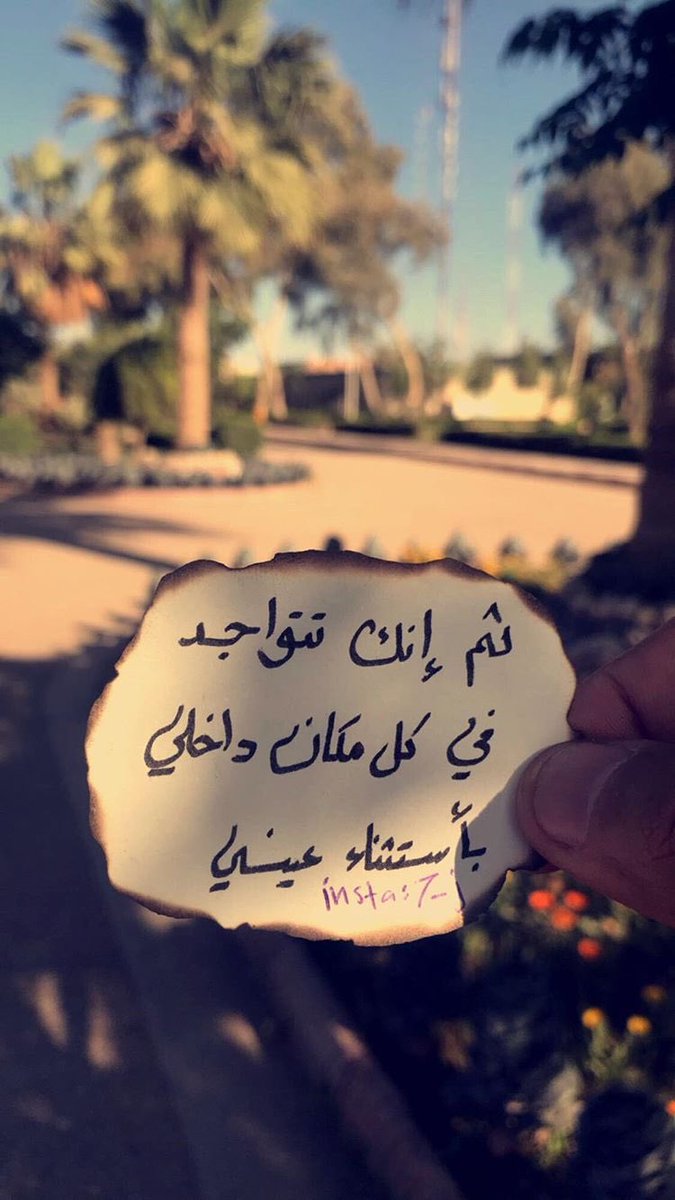 ثم إنك تتواجد
في كل مكان داخلي
بأستثناء عيني
insta:7_j